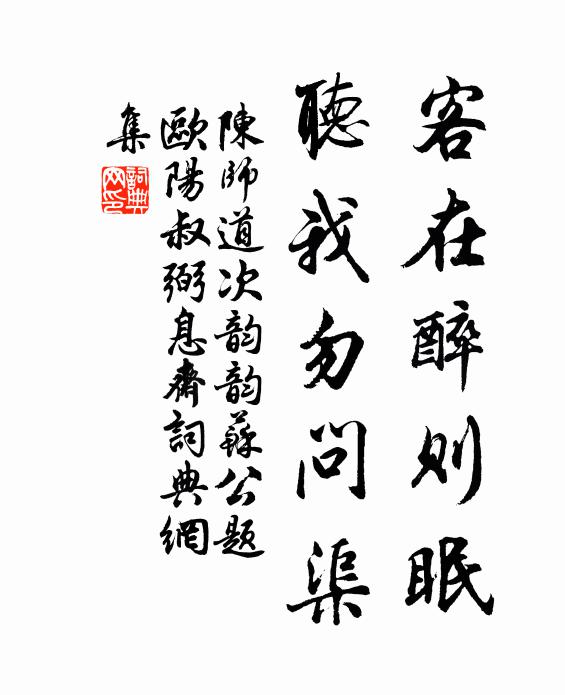 客在醉则眠
聽我勿问渠
陳師道次韵韵蘇公题
歐陽叔弼息齋詞典網
集
詞典网印